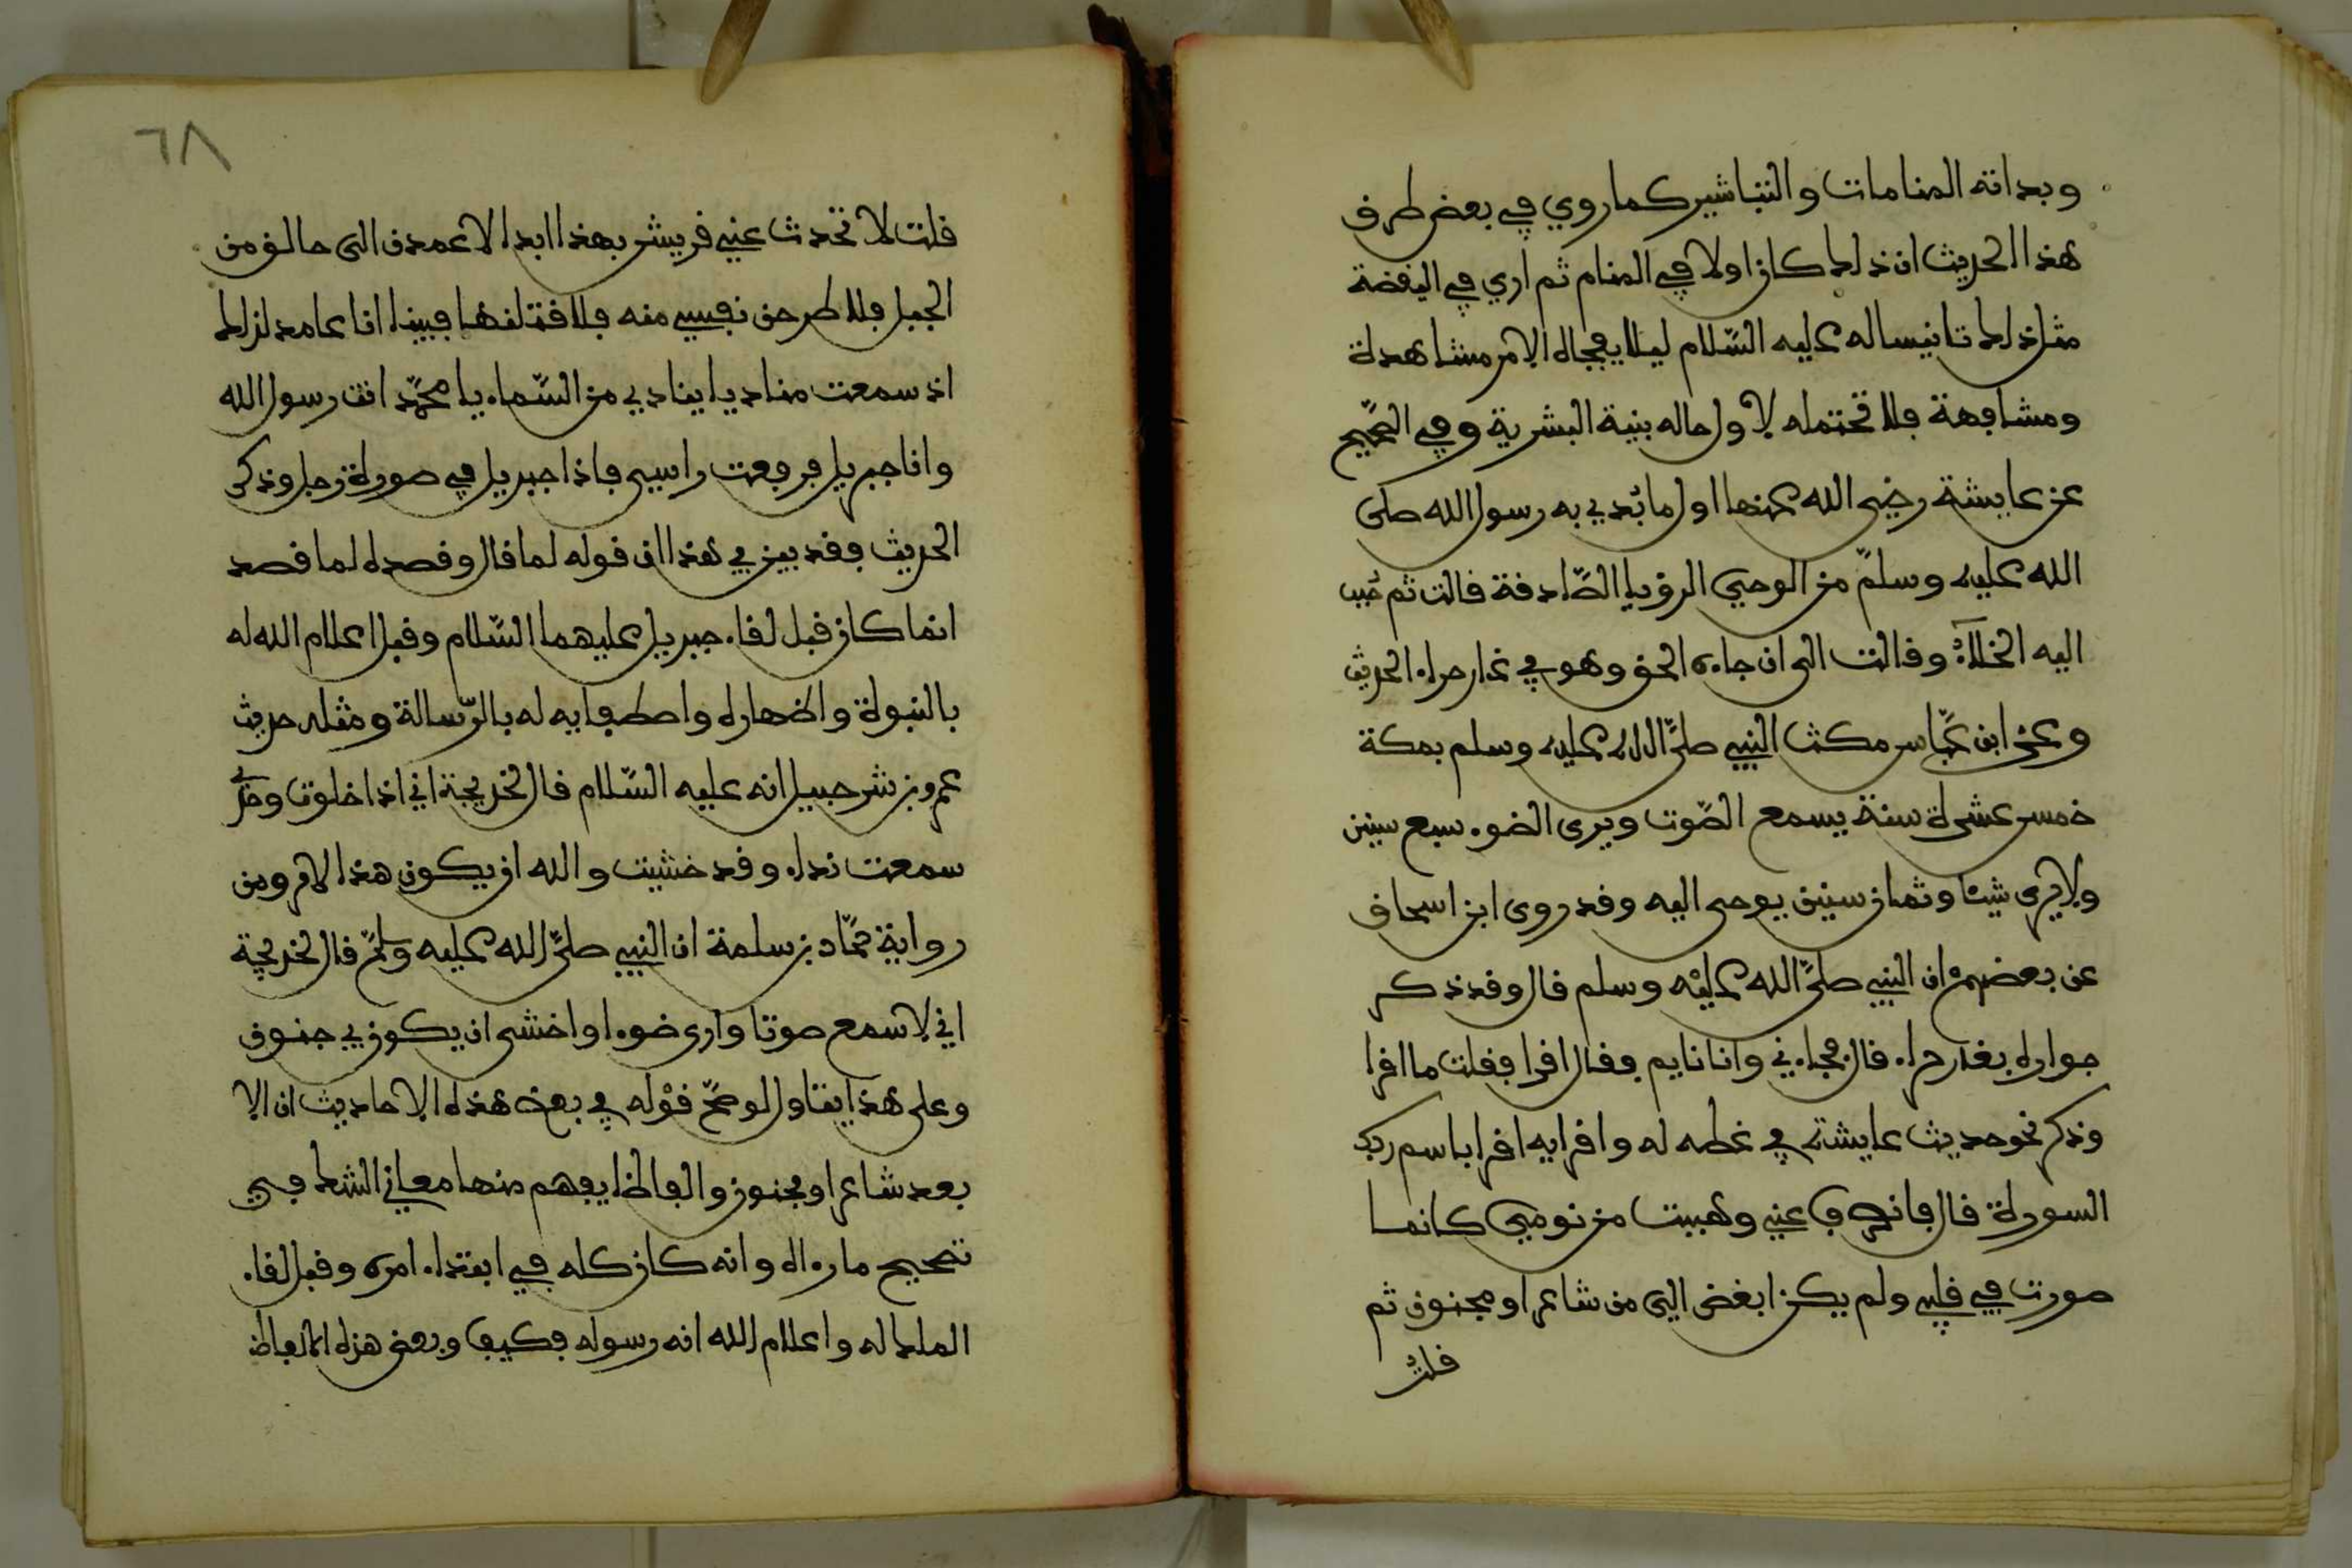 وبداته المنامات والتباشير كما روي في بعض طرق
هذا الحديث ان ذلك كان اولا في المنام ثم اري في اليقضة
مثل ذلك تانيسا له عليه السّلام ليلا يفجاه الامر مشاهدة
ومشافهة فلا تحتمله لاول حاله بنية البشرية وفي الصّحيح
عن عايشة رضي الله عنها اول ما بُدي به رسول الله صلى
الله عليه وسلمّ من الوحي الرؤيا الصّادقة قالت ثم حُبب
اليه الخلآءُ وقالت الى ان جاءه الحق وهو في غار حراء الحديث
وعن ابن عبّاس مكث النبي صلىّ الله عليه وسلم بمكة
خمس عشرة سنة يسمع الصّوت ويرى الضوء سبع سنين
ولا يرى شيئا وثمان سنين يوحى اليه وقد روى ابن اسحاق
عن بعضهمْ ان النبي صلىّ الله عليْه وسلم قال وقد ذكر
جواره بغار حراء قال فجاءني وانا نايم فقال اقرا فقلت ما اقرا
وذكر نحو حديث عايشة في غطه له واقرايه اقرا باسم ربك
السورة قال فانصرف عني وهببت من نومي كانما
صورت في قلبي ولم يكن ابغض الي من شاعر او مجنون ثم
قلتُ
٦٨
قلت لا تحدث عني قريش بهذا ابدا لاعمدن الى حالق من
الجبل فلاطرحن نفسي منه فلاقتلنها فبينا انا عامد لذلك
اذ سمعت مناديا ينادي من السّماء يا محمّد انت رسول الله
وانا جبريل فرفعت راسي فاذا جبريل في صورة رجل وذكر
الحديث فقد بين في هذا ان قوله لما قال وقصده لما قصد
انما كان قبل لقاء جبريل عليهما السّلام وقبل اعلام الله له
بالنبوة واظهاره واصطفايه له بالرّسالة ومثله حديث
عمرو بن شرحبيل انه عليه السّلام قال لخديجة اني اذا خلوت وحدي
سمعت نداء وقد خشيت والله ان يكون هذا لامر ومن
رواية حمّاد بن سلمة ان النبي صلىّ الله عليه وسلمّ قال لخديجة
اني لاسمع صوتا وارى ضوءا واخشى ان يكون بي جنون
وعلى هذا يتاول لو صحّ قوْله في بعض هذه الاحاديث ان الا
بعد شاعر او مجنون والفاظا يفهم منها معاني الشك في
تصحيح ما رءاه وانه كان كله في ابتداء امره وقبل لقاء
الملك له واعلام الله انه رسوله فكيف وبعض هذه الالفاظ